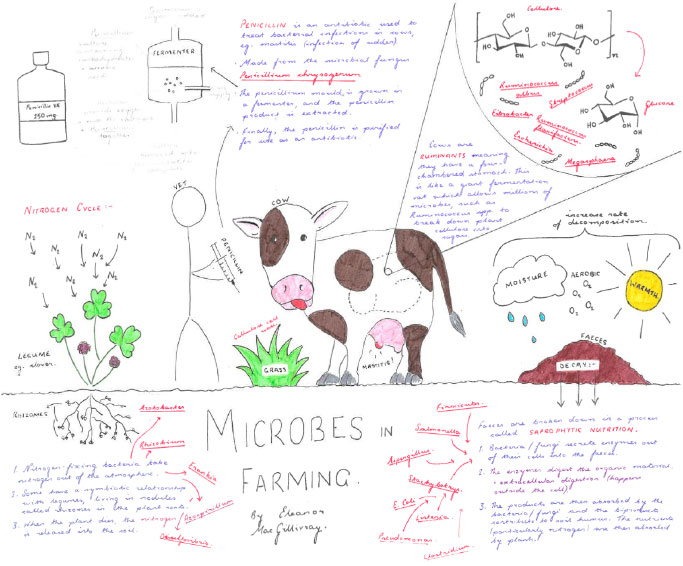 PENICILLIN is an antibiotic used to
treat bacterial infections in cows,
eg. mastitis (infection of udder)
· Made from the microbial fungus
Penicillium chrysogenum
· The penicillium mould is grown in
a fermenter, and the penicillin
product is extracted.
· Finally, the penicillin is purified
for use as an antibiotic
FERMENTER
Penicillin VK
250mg
Cellulose
Glucose
Ruminococcus
albus
Streptococcus
Ruminococcus
Escherichia
Megasphaera
Cows are
RUMINANTS meaning
they have a four-
chambered stomach. This
is like a giant fermentation
vat which allows millions of
microbes, such as
Ruminococcus spp to
break down plant
cellulose into
sugars
NITROGEN CYCLE:-
N₂ N₂ N₂ N₂
N₂ N₂ N₂
LEGUME
eg. clover.
RHIZOMES
VET
PENICILLIN
COW
Cellulose cell
walls
GRASS
MASTITIS
increase rate
of decomposition.
MOISTURE
AEROBIC
O₂
O₂
O₂
O₂
WARMTH
FAECES
DECAY:-
MICROBES IN
FARMING.
By Eleanor
MacGillivray.
Azotobacter
Rhizobium
Frankia
1. Nitrogen-fixing bacteria take
nitrogen out of the atmosphere.
2. Some have a symbiotic relationship
with legumes, living in nodules
called rhizomes in the plant roots.
3. When the plant dies, the nitrogen
is released into the soil.
Firmicutes
Salmonella
Aspergillus
Stachybotrys
E. Coli
Pseudomonas
Clostridium
Faeces are broken down in a process
called SAPROPHYTIC NUTRITION.
1. Bacteria/fungi secrete enzymes out
of their cells into the faeces.
2. The enzymes digest the organic material
: extracellular digestion (happens
outside the cell)
3. The products are then absorbed by the
bacteria/fungi and the biproducts
contribute to soil humus. The nutrients
(particularly nitrogen) are then absorbed
by plants!